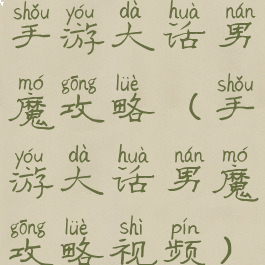 shǒu yóu dà huà nán
手游大话男
mó gōng lüè shǒu
魔攻略（手
yóu dà huà nán mó
游大话男魔
gōng lüè shì pín
攻略视频）